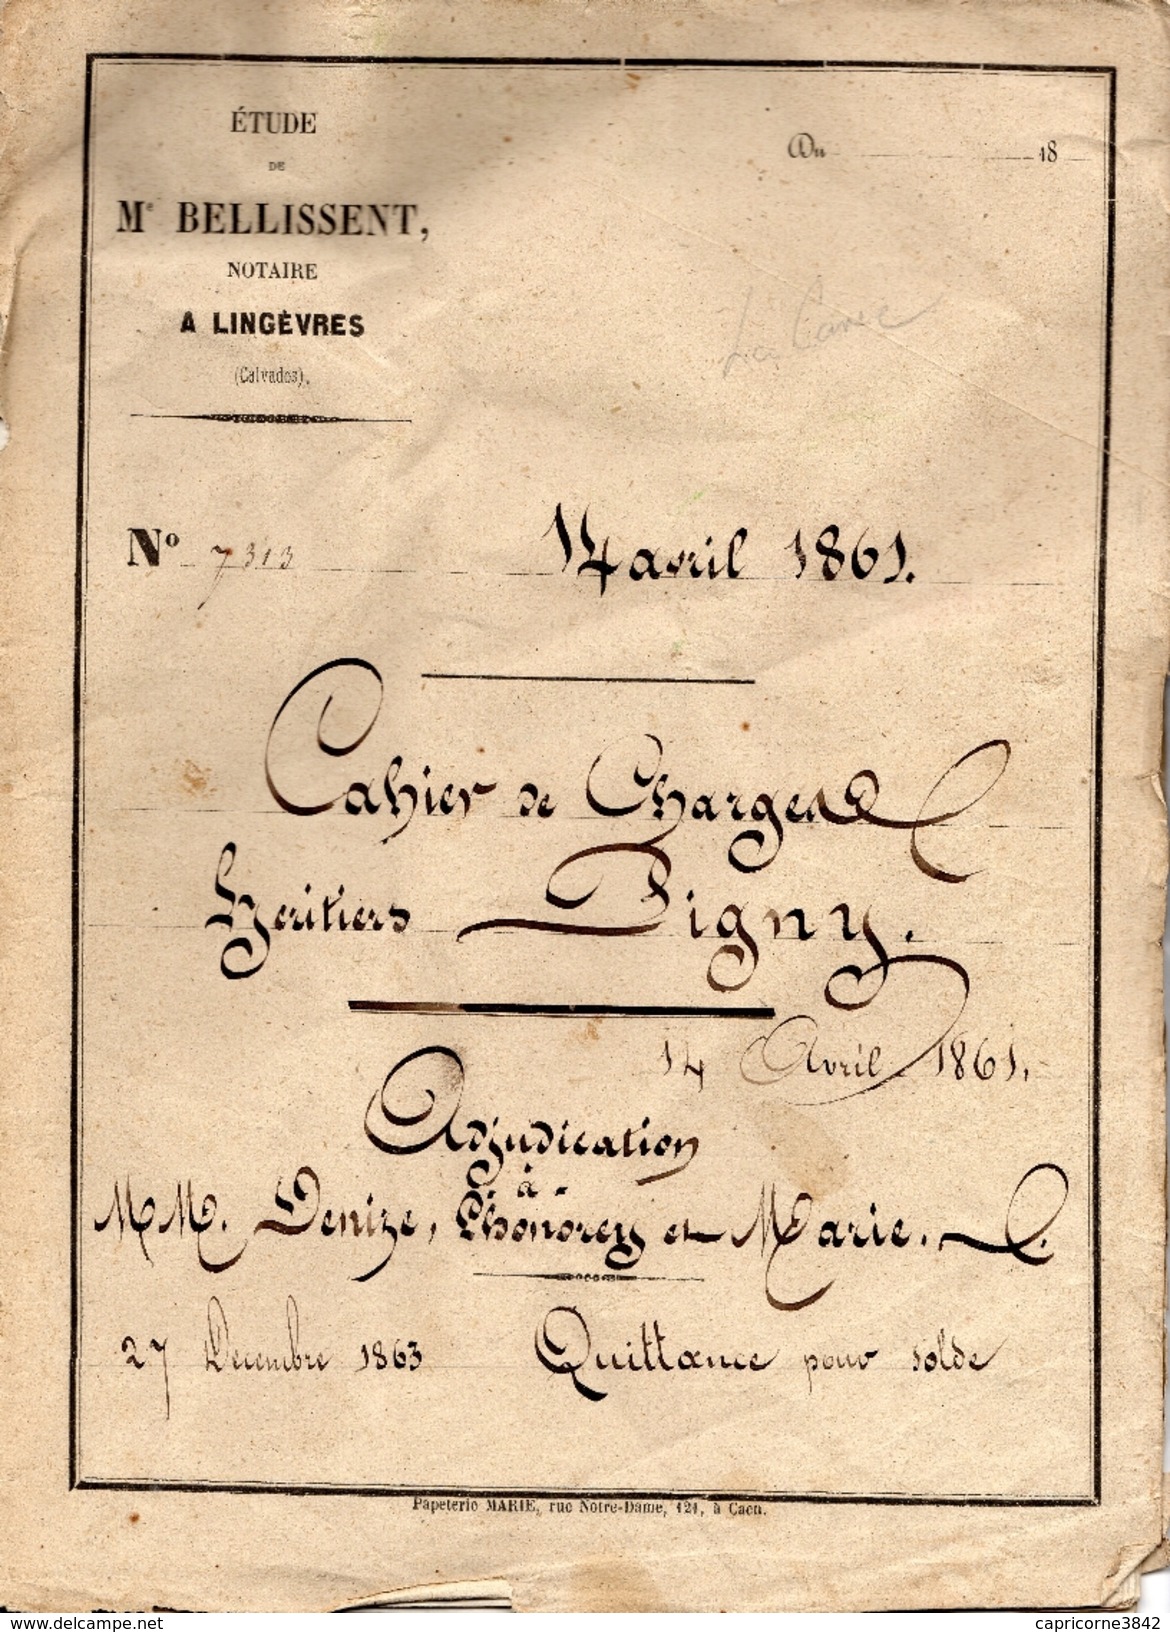 ÉTUDE
DE
Me BELLISSENT,
NOTAIRE
A LINGÈVRES
(Calvados).
Du 18
No 7313
14 avril 1861.
Cahier de Charges
heritiers Digny.
14 Avril 1861.
Adjudication
à
MM. Denize, Lhonorey et Marie.
27 Decembre 1863 Quittance pour solde
Papeterie MARIE, rue Notre-Dame, 121, à Caen.
www.delcampe.net
capricorne3842